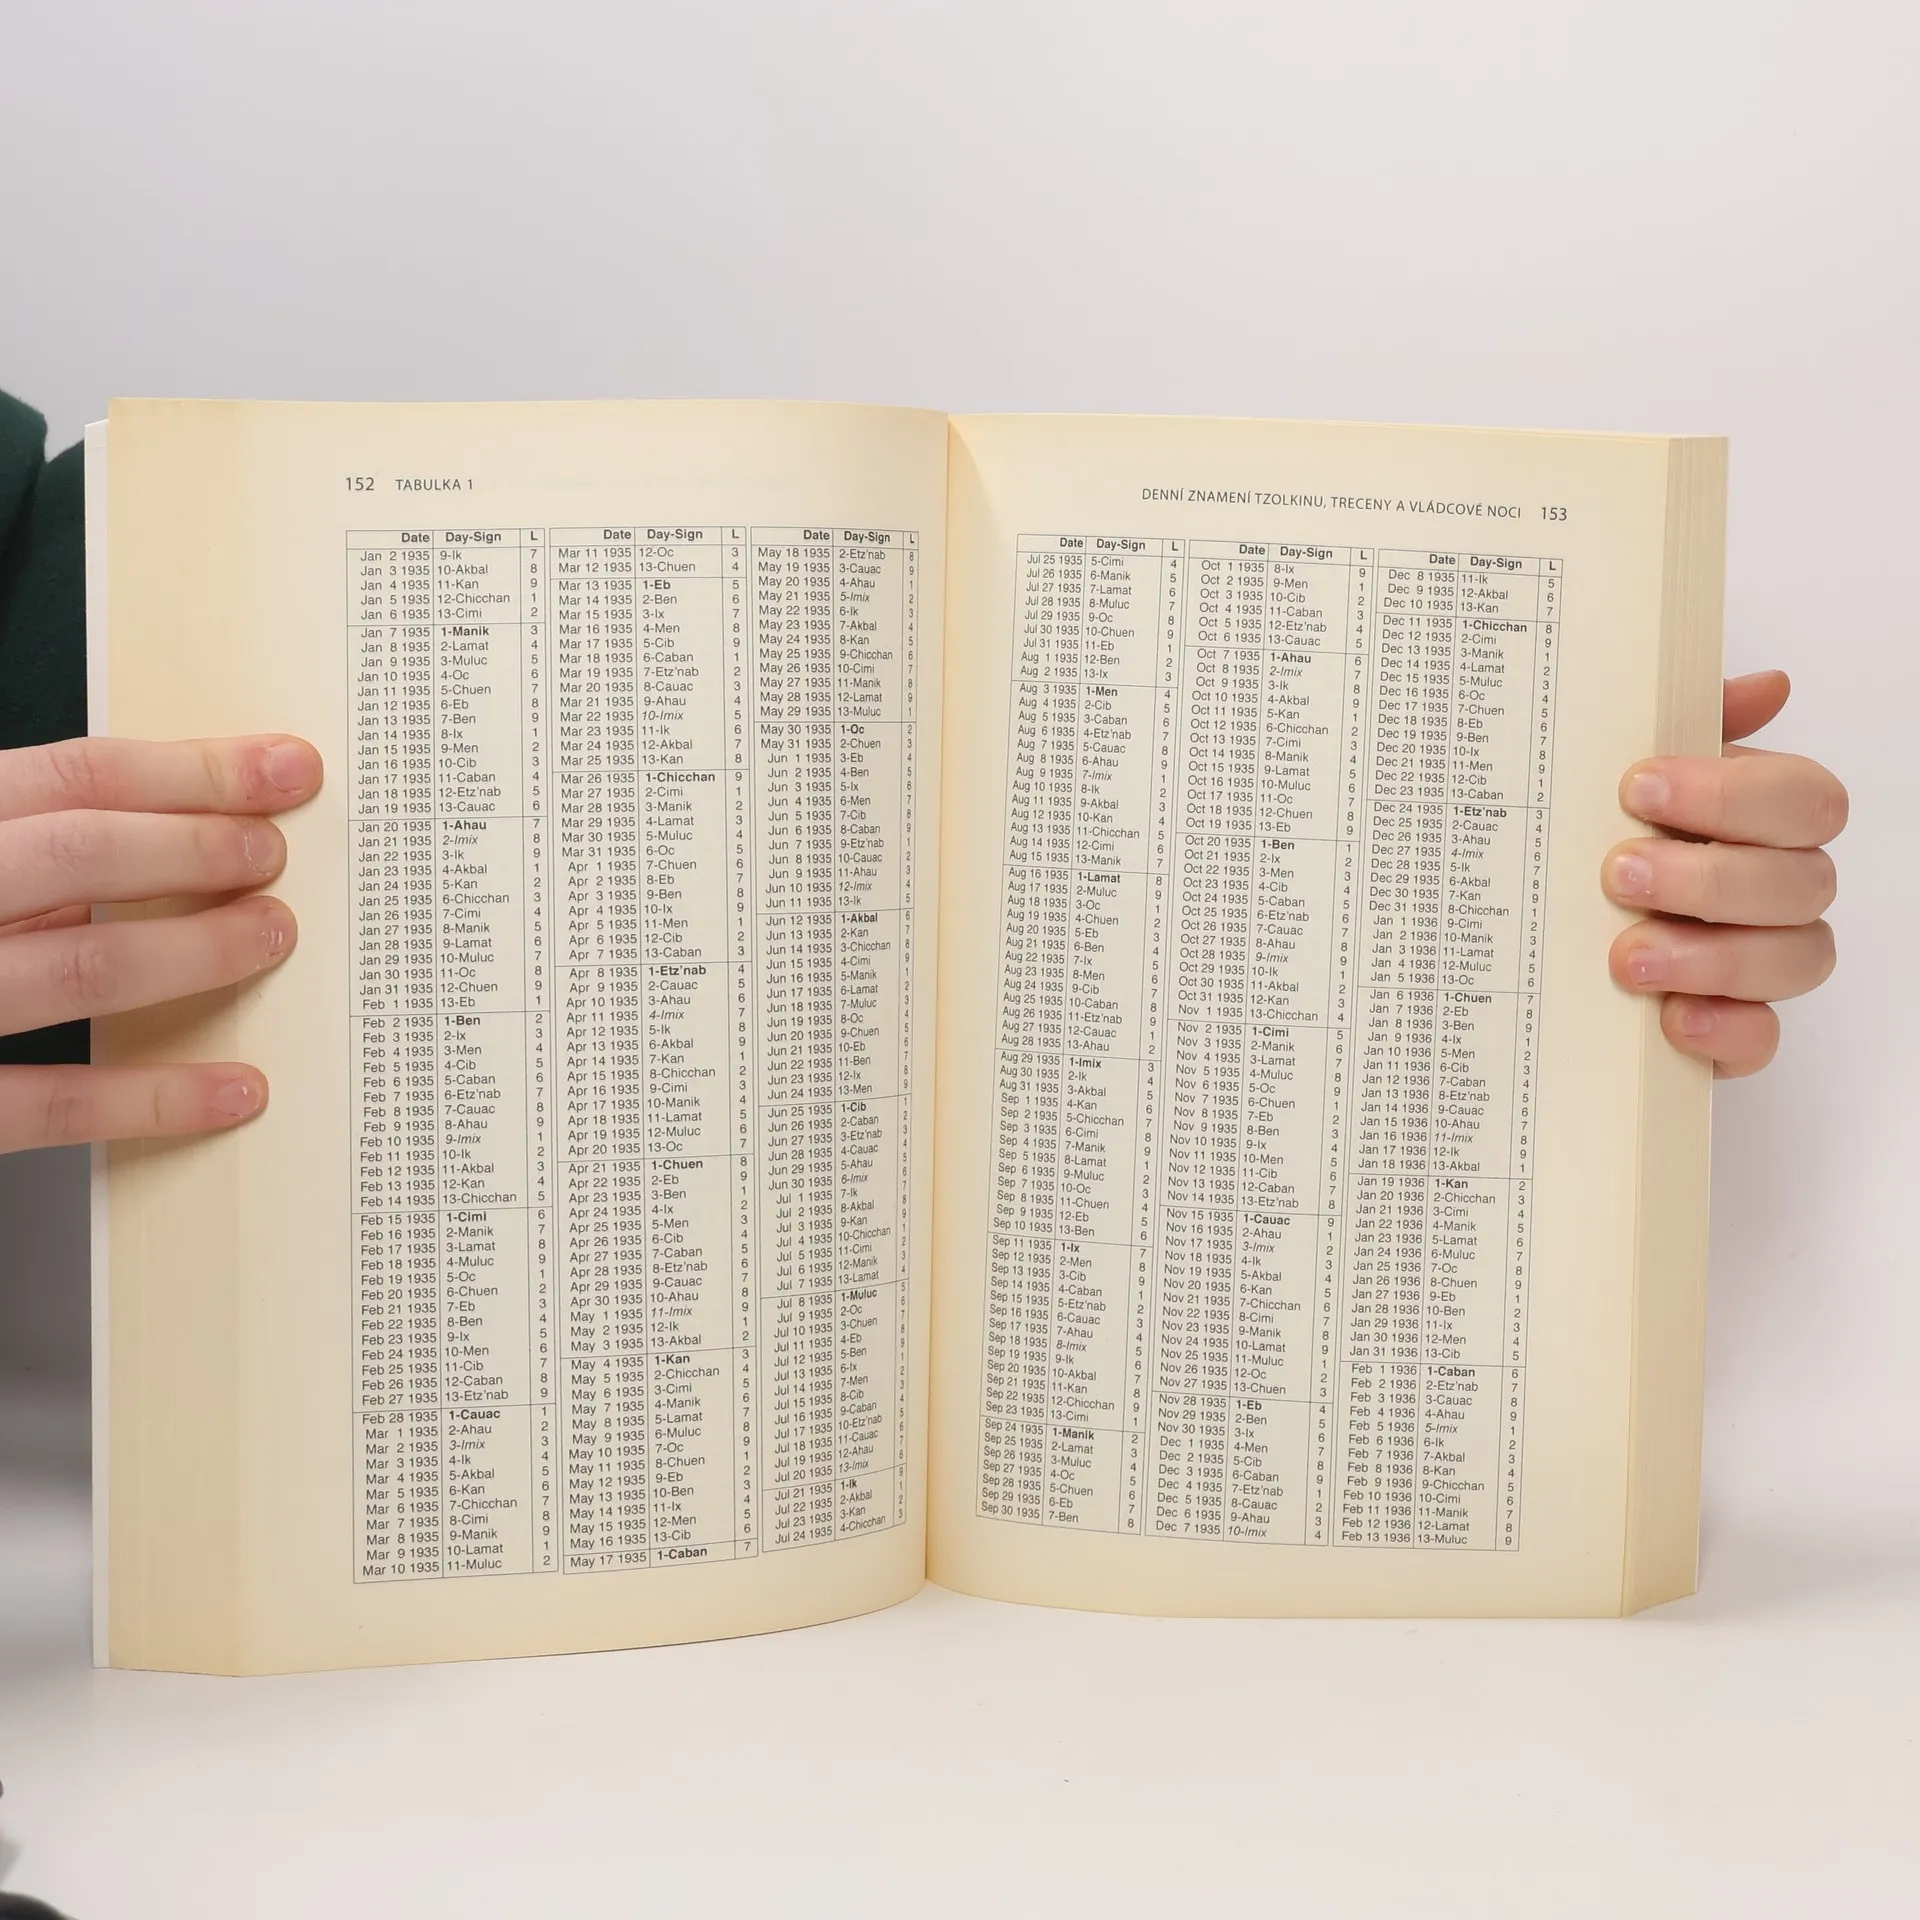 152 TABULKA 1
Date Day-Sign L
Jan 2 1935 9-Ik 7
Jan 3 1935 10-Akbal 8
Jan 4 1935 11-Kan 9
Jan 5 1935 12-Chicchan 1
Jan 6 1935 13-Cimi 2
Jan 7 1935 1-Manik 3
Jan 8 1935 2-Lamat 4
Jan 9 1935 3-Muluc 5
Jan 10 1935 4-Oc 6
Jan 11 1935 5-Chuen 7
Jan 12 1935 6-Eb 8
Jan 13 1935 7-Ben 9
Jan 14 1935 8-Ix 1
Jan 15 1935 9-Men 2
Jan 16 1935 10-Cib 3
Jan 17 1935 11-Caban 4
Jan 18 1935 12-Etz'nab 5
Jan 19 1935 13-Cauac 6
Jan 20 1935 1-Ahau 7
Jan 21 1935 2-Imix 8
Jan 22 1935 3-Ik 9
Jan 23 1935 4-Akbal 1
Jan 24 1935 5-Kan 2
Jan 25 1935 6-Chicchan 3
Jan 26 1935 7-Cimi 4
Jan 27 1935 8-Manik 5
Jan 28 1935 9-Lamat 6
Jan 29 1935 10-Muluc 7
Jan 30 1935 11-Oc 8
Jan 31 1935 12-Chuen 9
Feb 1 1935 13-Eb 1
Feb 2 1935 1-Ben 2
Feb 3 1935 2-Ix 3
Feb 4 1935 3-Men 4
Feb 5 1935 4-Cib 5
Feb 6 1935 5-Caban 6
Feb 7 1935 6-Etz'nab 7
Feb 8 1935 7-Cauac 8
Feb 9 1935 8-Ahau 9
Feb 10 1935 9-Imix 1
Feb 11 1935 10-Ik 2
Feb 12 1935 11-Akbal 3
Feb 13 1935 12-Kan 4
Feb 14 1935 13-Chicchan 5
Feb 15 1935 1-Cimi 6
Feb 16 1935 2-Manik 7
Feb 17 1935 3-Lamat 8
Feb 18 1935 4-Muluc 9
Feb 19 1935 5-Oc 1
Feb 20 1935 6-Chuen 2
Feb 21 1935 7-Eb 3
Feb 22 1935 8-Ben 4
Feb 23 1935 9-Ix 5
Feb 24 1935 10-Men 6
Feb 25 1935 11-Cib 7
Feb 26 1935 12-Caban 8
Feb 27 1935 13-Etz'nab 9
Feb 28 1935 1-Cauac 1
Mar 1 1935 2-Ahau 2
Mar 2 1935 3-Imix 3
Mar 3 1935 4-Ik 4
Mar 4 1935 5-Akbal 5
Mar 5 1935 6-Kan 6
Mar 6 1935 7-Chicchan 7
Mar 7 1935 8-Cimi 8
Mar 8 1935 9-Manik 9
Mar 9 1935 10-Lamat 1
Mar 10 1935 11-Muluc 2
Date Day-Sign L
Mar 11 1935 12-Oc 3
Mar 12 1935 13-Chuen 4
Mar 13 1935 1-Eb 5
Mar 14 1935 2-Ben 6
Mar 15 1935 3-Ix 7
Mar 16 1935 4-Men 8
Mar 17 1935 5-Cib 9
Mar 18 1935 6-Caban 1
Mar 19 1935 7-Etz'nab 2
Mar 20 1935 8-Cauac 3
Mar 21 1935 9-Ahau 4
Mar 22 1935 10-Imix 5
Mar 23 1935 11-Ik 6
Mar 24 1935 12-Akbal 7
Mar 25 1935 13-Kan 8
Mar 26 1935 1-Chicchan 9
Mar 27 1935 2-Cimi 1
Mar 28 1935 3-Manik 2
Mar 29 1935 4-Lamat 3
Mar 30 1935 5-Muluc 4
Mar 31 1935 6-Oc 5
Apr 1 1935 7-Chuen 6
Apr 2 1935 8-Eb 7
Apr 3 1935 9-Ben 8
Apr 4 1935 10-Ix 9
Apr 5 1935 11-Men 1
Apr 6 1935 12-Cib 2
Apr 7 1935 13-Caban 3
Apr 8 1935 1-Etz'nab 4
Apr 9 1935 2-Cauac 5
Apr 10 1935 3-Ahau 6
Apr 11 1935 4-Imix 7
Apr 12 1935 5-Ik 8
Apr 13 1935 6-Akbal 9
Apr 14 1935 7-Kan 1
Apr 15 1935 8-Chicchan 2
Apr 16 1935 9-Cimi 3
Apr 17 1935 10-Manik 4
Apr 18 1935 11-Lamat 5
Apr 19 1935 12-Muluc 6
Apr 20 1935 13-Oc 7
Apr 21 1935 1-Chuen 8
Apr 22 1935 2-Eb 9
Apr 23 1935 3-Ben 1
Apr 24 1935 4-Ix 2
Apr 25 1935 5-Men 3
Apr 26 1935 6-Cib 4
Apr 27 1935 7-Caban 5
Apr 28 1935 8-Etz'nab 6
Apr 29 1935 9-Cauac 7
Apr 30 1935 10-Ahau 8
May 1 1935 11-Imix 9
May 2 1935 12-Ik 1
May 3 1935 13-Akbal 2
May 4 1935 1-Kan 3
May 5 1935 2-Chicchan 4
May 6 1935 3-Cimi 5
May 7 1935 4-Manik 6
May 8 1935 5-Lamat 7
May 9 1935 6-Muluc 8
May 10 1935 7-Oc 9
May 11 1935 8-Chuen 1
May 12 1935 9-Eb 2
May 13 1935 10-Ben 3
May 14 1935 11-Ix 4
May 15 1935 12-Men 5
May 16 1935 13-Cib 6
May 17 1935 1-Caban 7
Date Day-Sign L
May 18 1935 2-Etz'nab 8
May 19 1935 3-Cauac 9
May 20 1935 4-Ahau 1
May 21 1935 5-Imix 2
May 22 1935 6-Ik 3
May 23 1935 7-Akbal 4
May 24 1935 8-Kan 5
May 25 1935 9-Chicchan 6
May 26 1935 10-Cimi 7
May 27 1935 11-Manik 8
May 28 1935 12-Lamat 9
May 29 1935 13-Muluc 1
May 30 1935 1-Oc 2
May 31 1935 2-Chuen 3
Jun 1 1935 3-Eb 4
Jun 2 1935 4-Ben 5
Jun 3 1935 5-Ix 6
Jun 4 1935 6-Men 7
Jun 5 1935 7-Cib 8
Jun 6 1935 8-Caban 9
Jun 7 1935 9-Etz'nab 1
Jun 8 1935 10-Cauac 2
Jun 9 1935 11-Ahau 3
Jun 10 1935 12-Imix 4
Jun 11 1935 13-Ik 5
Jun 12 1935 1-Akbal 6
Jun 13 1935 2-Kan 7
Jun 14 1935 3-Chicchan 8
Jun 15 1935 4-Cimi 9
Jun 16 1935 5-Manik 1
Jun 17 1935 6-Lamat 2
Jun 18 1935 7-Muluc 3
Jun 19 1935 8-Oc 4
Jun 20 1935 9-Chuen 5
Jun 21 1935 10-Eb 6
Jun 22 1935 11-Ben 7
Jun 23 1935 12-Ix 8
Jun 24 1935 13-Men 9
Jun 25 1935 1-Cib 1
Jun 26 1935 2-Caban 2
Jun 27 1935 3-Etz'nab 3
Jun 28 1935 4-Cauac 4
Jun 29 1935 5-Ahau 5
Jun 30 1935 6-Imix 6
Jul 1 1935 7-Ik 7
Jul 2 1935 8-Akbal 8
Jul 3 1935 9-Kan 9
Jul 4 1935 10-Chicchan 1
Jul 5 1935 11-Cimi 2
Jul 6 1935 12-Manik 3
Jul 7 1935 13-Lamat 4
Jul 8 1935 1-Muluc 5
Jul 9 1935 2-Oc 6
Jul 10 1935 3-Chuen 7
Jul 11 1935 4-Eb 8
Jul 12 1935 5-Ben 9
Jul 13 1935 6-Ix 1
Jul 14 1935 7-Men 2
Jul 15 1935 8-Cib 3
Jul 16 1935 9-Caban 4
Jul 17 1935 10-Etz'nab 5
Jul 18 1935 11-Cauac 6
Jul 19 1935 12-Ahau 7
Jul 20 1935 13-Imix 8
Jul 21 1935 1-Ik 9
Jul 22 1935 2-Akbal 1
Jul 23 1935 3-Kan 2
Jul 24 1935 4-Chicchan 3
DENNÍ ZNAMENÍ TZOLKINU, TRECENY A VLÁDCOVÉ NOCI 153
Date Day-Sign L
Jul 25 1935 5-Cimi 4
Jul 26 1935 6-Manik 5
Jul 27 1935 7-Lamat 6
Jul 28 1935 8-Muluc 7
Jul 29 1935 9-Oc 8
Jul 30 1935 10-Chuen 9
Jul 31 1935 11-Eb 1
Aug 1 1935 12-Ben 2
Aug 2 1935 13-Ix 3
Aug 3 1935 1-Men 4
Aug 4 1935 2-Cib 5
Aug 5 1935 3-Caban 6
Aug 6 1935 4-Etz'nab 7
Aug 7 1935 5-Cauac 8
Aug 8 1935 6-Ahau 9
Aug 9 1935 7-Imix 1
Aug 10 1935 8-Ik 2
Aug 11 1935 9-Akbal 3
Aug 12 1935 10-Kan 4
Aug 13 1935 11-Chicchan 5
Aug 14 1935 12-Cimi 6
Aug 15 1935 13-Manik 7
Aug 16 1935 1-Lamat 8
Aug 17 1935 2-Muluc 9
Aug 18 1935 3-Oc 1
Aug 19 1935 4-Chuen 2
Aug 20 1935 5-Eb 3
Aug 21 1935 6-Ben 4
Aug 22 1935 7-Ix 5
Aug 23 1935 8-Men 6
Aug 24 1935 9-Cib 7
Aug 25 1935 10-Caban 8
Aug 26 1935 11-Etz'nab 9
Aug 27 1935 12-Cauac 1
Aug 28 1935 13-Ahau 2
Aug 29 1935 1-Imix 3
Aug 30 1935 2-Ik 4
Aug 31 1935 3-Akbal 5
Sep 1 1935 4-Kan 6
Sep 2 1935 5-Chicchan 7
Sep 3 1935 6-Cimi 8
Sep 4 1935 7-Manik 9
Sep 5 1935 8-Lamat 1
Sep 6 1935 9-Muluc 2
Sep 7 1935 10-Oc 3
Sep 8 1935 11-Chuen 4
Sep 9 1935 12-Eb 5
Sep 10 1935 13-Ben 6
Sep 11 1935 1-Ix 7
Sep 12 1935 2-Men 8
Sep 13 1935 3-Cib 9
Sep 14 1935 4-Caban 1
Sep 15 1935 5-Etz'nab 2
Sep 16 1935 6-Cauac 3
Sep 17 1935 7-Ahau 4
Sep 18 1935 8-Imix 5
Sep 19 1935 9-Ik 6
Sep 20 1935 10-Akbal 7
Sep 21 1935 11-Kan 8
Sep 22 1935 12-Chicchan 9
Sep 23 1935 13-Cimi 1
Sep 24 1935 1-Manik 2
Sep 25 1935 2-Lamat 3
Sep 26 1935 3-Muluc 4
Sep 27 1935 4-Oc 5
Sep 28 1935 5-Chuen 6
Sep 29 1935 6-Eb 7
Sep 30 1935 7-Ben 8
Date Day-Sign L
Oct 1 1935 8-Ix 9
Oct 2 1935 9-Men 1
Oct 3 1935 10-Cib 2
Oct 4 1935 11-Caban 3
Oct 5 1935 12-Etz'nab 4
Oct 6 1935 13-Cauac 5
Oct 7 1935 1-Ahau 6
Oct 8 1935 2-Imix 7
Oct 9 1935 3-Ik 8
Oct 10 1935 4-Akbal 9
Oct 11 1935 5-Kan 1
Oct 12 1935 6-Chicchan 2
Oct 13 1935 7-Cimi 3
Oct 14 1935 8-Manik 4
Oct 15 1935 9-Lamat 5
Oct 16 1935 10-Muluc 6
Oct 17 1935 11-Oc 7
Oct 18 1935 12-Chuen 8
Oct 19 1935 13-Eb 9
Oct 20 1935 1-Ben 1
Oct 21 1935 2-Ix 2
Oct 22 1935 3-Men 3
Oct 23 1935 4-Cib 4
Oct 24 1935 5-Caban 5
Oct 25 1935 6-Etz'nab 6
Oct 26 1935 7-Cauac 7
Oct 27 1935 8-Ahau 8
Oct 28 1935 9-Imix 9
Oct 29 1935 10-Ik 1
Oct 30 1935 11-Akbal 2
Oct 31 1935 12-Kan 3
Nov 1 1935 13-Chicchan 4
Nov 2 1935 1-Cimi 5
Nov 3 1935 2-Manik 6
Nov 4 1935 3-Lamat 7
Nov 5 1935 4-Muluc 8
Nov 6 1935 5-Oc 9
Nov 7 1935 6-Chuen 1
Nov 8 1935 7-Eb 2
Nov 9 1935 8-Ben 3
Nov 10 1935 9-Ix 4
Nov 11 1935 10-Men 5
Nov 12 1935 11-Cib 6
Nov 13 1935 12-Caban 7
Nov 14 1935 13-Etz'nab 8
Nov 15 1935 1-Cauac 9
Nov 16 1935 2-Ahau 1
Nov 17 1935 3-Imix 2
Nov 18 1935 4-Ik 3
Nov 19 1935 5-Akbal 4
Nov 20 1935 6-Kan 5
Nov 21 1935 7-Chicchan 6
Nov 22 1935 8-Cimi 7
Nov 23 1935 9-Manik 8
Nov 24 1935 10-Lamat 9
Nov 25 1935 11-Muluc 1
Nov 26 1935 12-Oc 2
Nov 27 1935 13-Chuen 3
Nov 28 1935 1-Eb 4
Nov 29 1935 2-Ben 5
Nov 30 1935 3-Ix 6
Dec 1 1935 4-Men 7
Dec 2 1935 5-Cib 8
Dec 3 1935 6-Caban 9
Dec 4 1935 7-Etz'nab 1
Dec 5 1935 8-Cauac 2
Dec 6 1935 9-Ahau 3
Dec 7 1935 10-Imix 4
Date Day-Sign L
Dec 8 1935 11-Ik 5
Dec 9 1935 12-Akbal 6
Dec 10 1935 13-Kan 7
Dec 11 1935 1-Chicchan 8
Dec 12 1935 2-Cimi 9
Dec 13 1935 3-Manik 1
Dec 14 1935 4-Lamat 2
Dec 15 1935 5-Muluc 3
Dec 16 1935 6-Oc 4
Dec 17 1935 7-Chuen 5
Dec 18 1935 8-Eb 6
Dec 19 1935 9-Ben 7
Dec 20 1935 10-Ix 8
Dec 21 1935 11-Men 9
Dec 22 1935 12-Cib 1
Dec 23 1935 13-Caban 2
Dec 24 1935 1-Etz'nab 3
Dec 25 1935 2-Cauac 4
Dec 26 1935 3-Ahau 5
Dec 27 1935 4-Imix 6
Dec 28 1935 5-Ik 7
Dec 29 1935 6-Akbal 8
Dec 30 1935 7-Kan 9
Dec 31 1935 8-Chicchan 1
Jan 1 1936 9-Cimi 2
Jan 2 1936 10-Manik 3
Jan 3 1936 11-Lamat 4
Jan 4 1936 12-Muluc 5
Jan 5 1936 13-Oc 6
Jan 6 1936 1-Chuen 7
Jan 7 1936 2-Eb 8
Jan 8 1936 3-Ben 9
Jan 9 1936 4-Ix 1
Jan 10 1936 5-Men 2
Jan 11 1936 6-Cib 3
Jan 12 1936 7-Caban 4
Jan 13 1936 8-Etz'nab 5
Jan 14 1936 9-Cauac 6
Jan 15 1936 10-Ahau 7
Jan 16 1936 11-Imix 8
Jan 17 1936 12-Ik 9
Jan 18 1936 13-Akbal 1
Jan 19 1936 1-Kan 2
Jan 20 1936 2-Chicchan 3
Jan 21 1936 3-Cimi 4
Jan 22 1936 4-Manik 5
Jan 23 1936 5-Lamat 6
Jan 24 1936 6-Muluc 7
Jan 25 1936 7-Oc 8
Jan 26 1936 8-Chuen 9
Jan 27 1936 9-Eb 1
Jan 28 1936 10-Ben 2
Jan 29 1936 11-Ix 3
Jan 30 1936 12-Men 4
Jan 31 1936 13-Cib 5
Feb 1 1936 1-Caban 6
Feb 2 1936 2-Etz'nab 7
Feb 3 1936 3-Cauac 8
Feb 4 1936 4-Ahau 9
Feb 5 1936 5-Imix 1
Feb 6 1936 6-Ik 2
Feb 7 1936 7-Akbal 3
Feb 8 1936 8-Kan 4
Feb 9 1936 9-Chicchan 5
Feb 10 1936 10-Cimi 6
Feb 11 1936 11-Manik 7
Feb 12 1936 12-Lamat 8
Feb 13 1936 13-Muluc 9